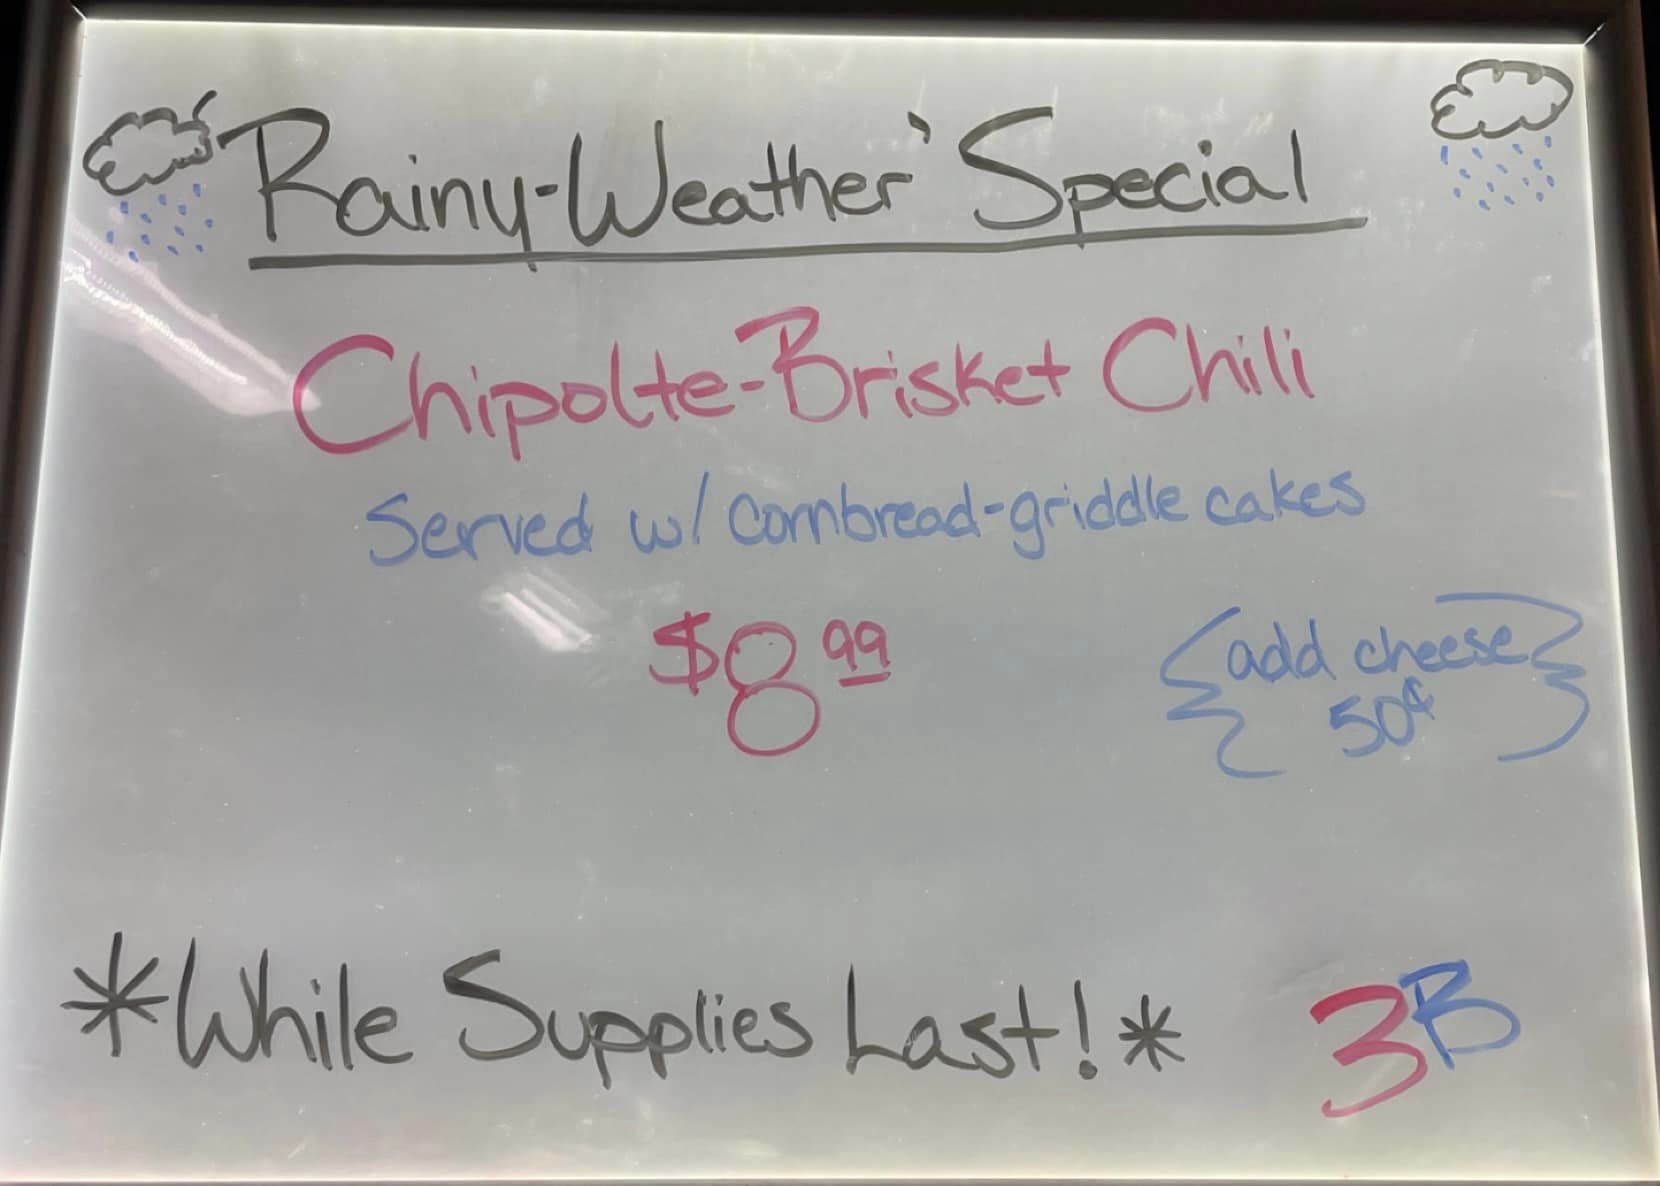 'Rainy-Weather' Special
Chipolte-Brisket Chili
Served w/ cornbread-griddle cakes
$8 99
{add cheese
50¢}
*While Supplies Last!*
3B